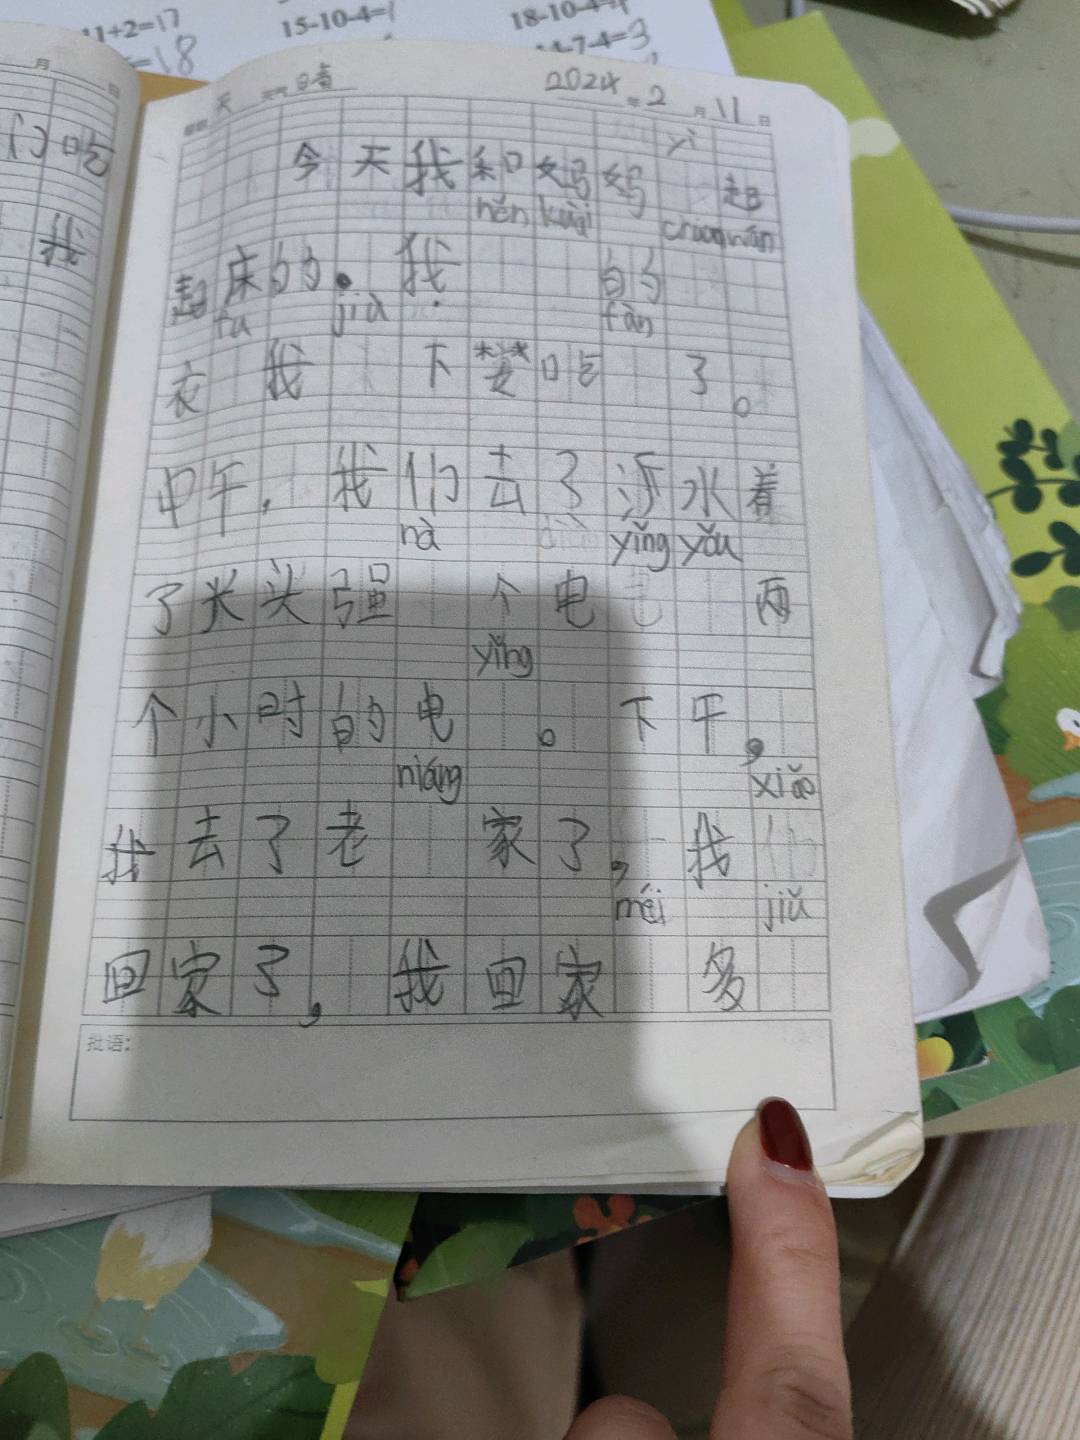 11+2=17
=18
15-10-4=1
18-10-4=
14-7-4=3
月 日
们吃
我
天 天气 晴 2024 年 2 月 11 日
yì
今天我和妈妈 起
hěn kuài chuān wán
起床的. 我 的
fu jiù fàn
衣 我 下楼吃 了。
中午, 我们去了 水着
nà yǐng yǒu
了光头强 个电 两
yǐng
个小时的电 。下午,
niáng xiǎo
我去了老 家了, 我们
méi jiǔ
回家了, 我回家 多
批语: